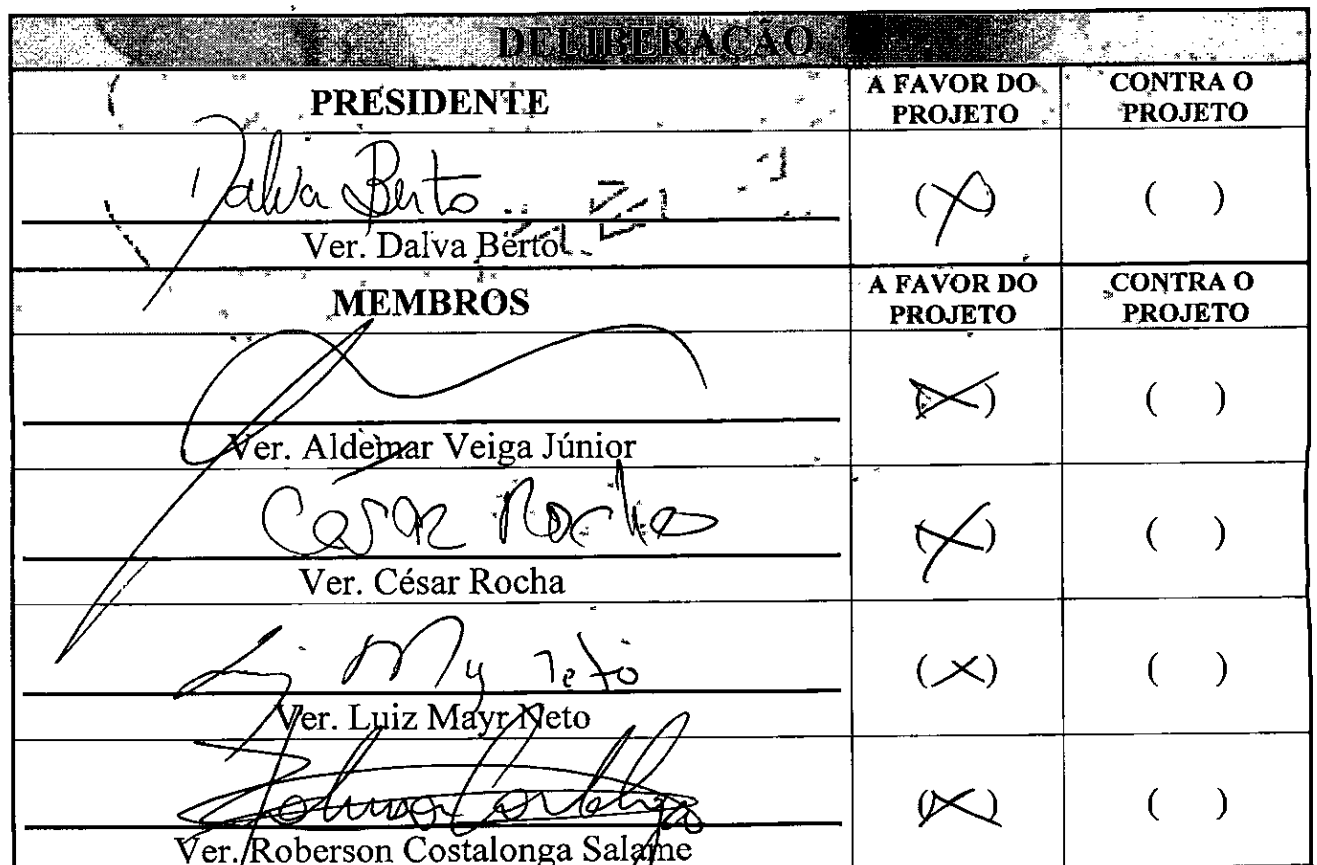 DELIBERAÇÃO
PRESIDENTE
A FAVOR DO
PROJETO
CONTRA O
PROJETO
Dalva Berto
(X)
( )
Ver. Dalva Berto
MEMBROS
A FAVOR DO
PROJETO
CONTRA O
PROJETO
(X)
( )
Ver. Aldemar Veiga Júnior
César Rocha
(X)
( )
Ver. César Rocha
(X)
( )
Ver. Luiz Mayr Neto
(X)
( )
Ver. Roberson Costalonga Salame